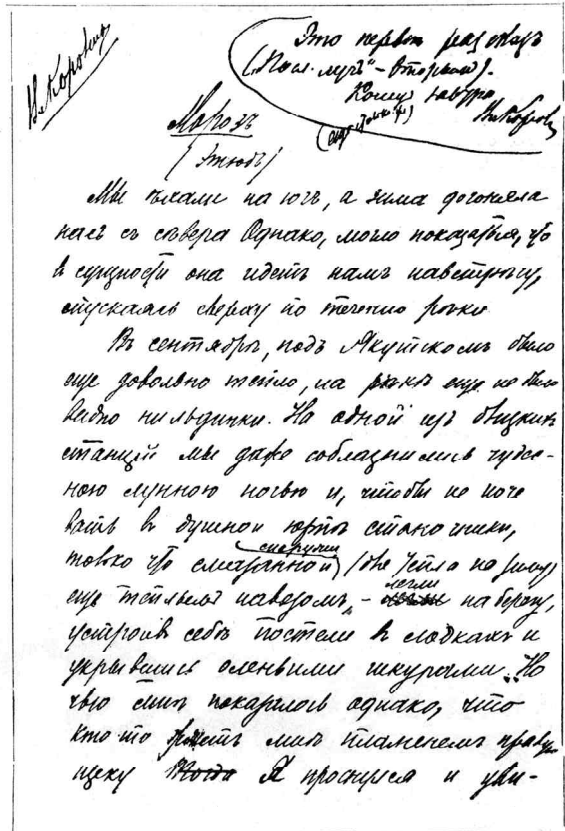 Вл Короленко
Это первый рассказ
("Посл. луч" – вторым).
Вл Короленко
Морозъ
(Этюдъ)
Мы ѣхали на югъ, а зима догоняла
насъ съ сѣвера Однако, могло показаться, что
в сущности она идетъ намъ навстрѣчу,
спускаясь сверху по теченію рѣки
Въ сентябрѣ, подъ Якутскомъ было
еще довольно тепло, на рѣкѣ еще не было
видно ни льдинки. На одной изъ близкихъ
станцій мы даже соблазнились чудес-
ною лунною ночью и, чтобы не ноче
вать в душной юртѣ станочника,
только что смазанной снаружи (для тепла на зиму)
еще теплымъ навозомъ, – легли на берегу,
устроивъ себѣ постели в лодкахъ и
укрывшись оленьими шкурами. Но
чью мнѣ показалось однако, что
кто то жжетъ мнѣ пламенемъ правую
щеку Я проснулся и уви-